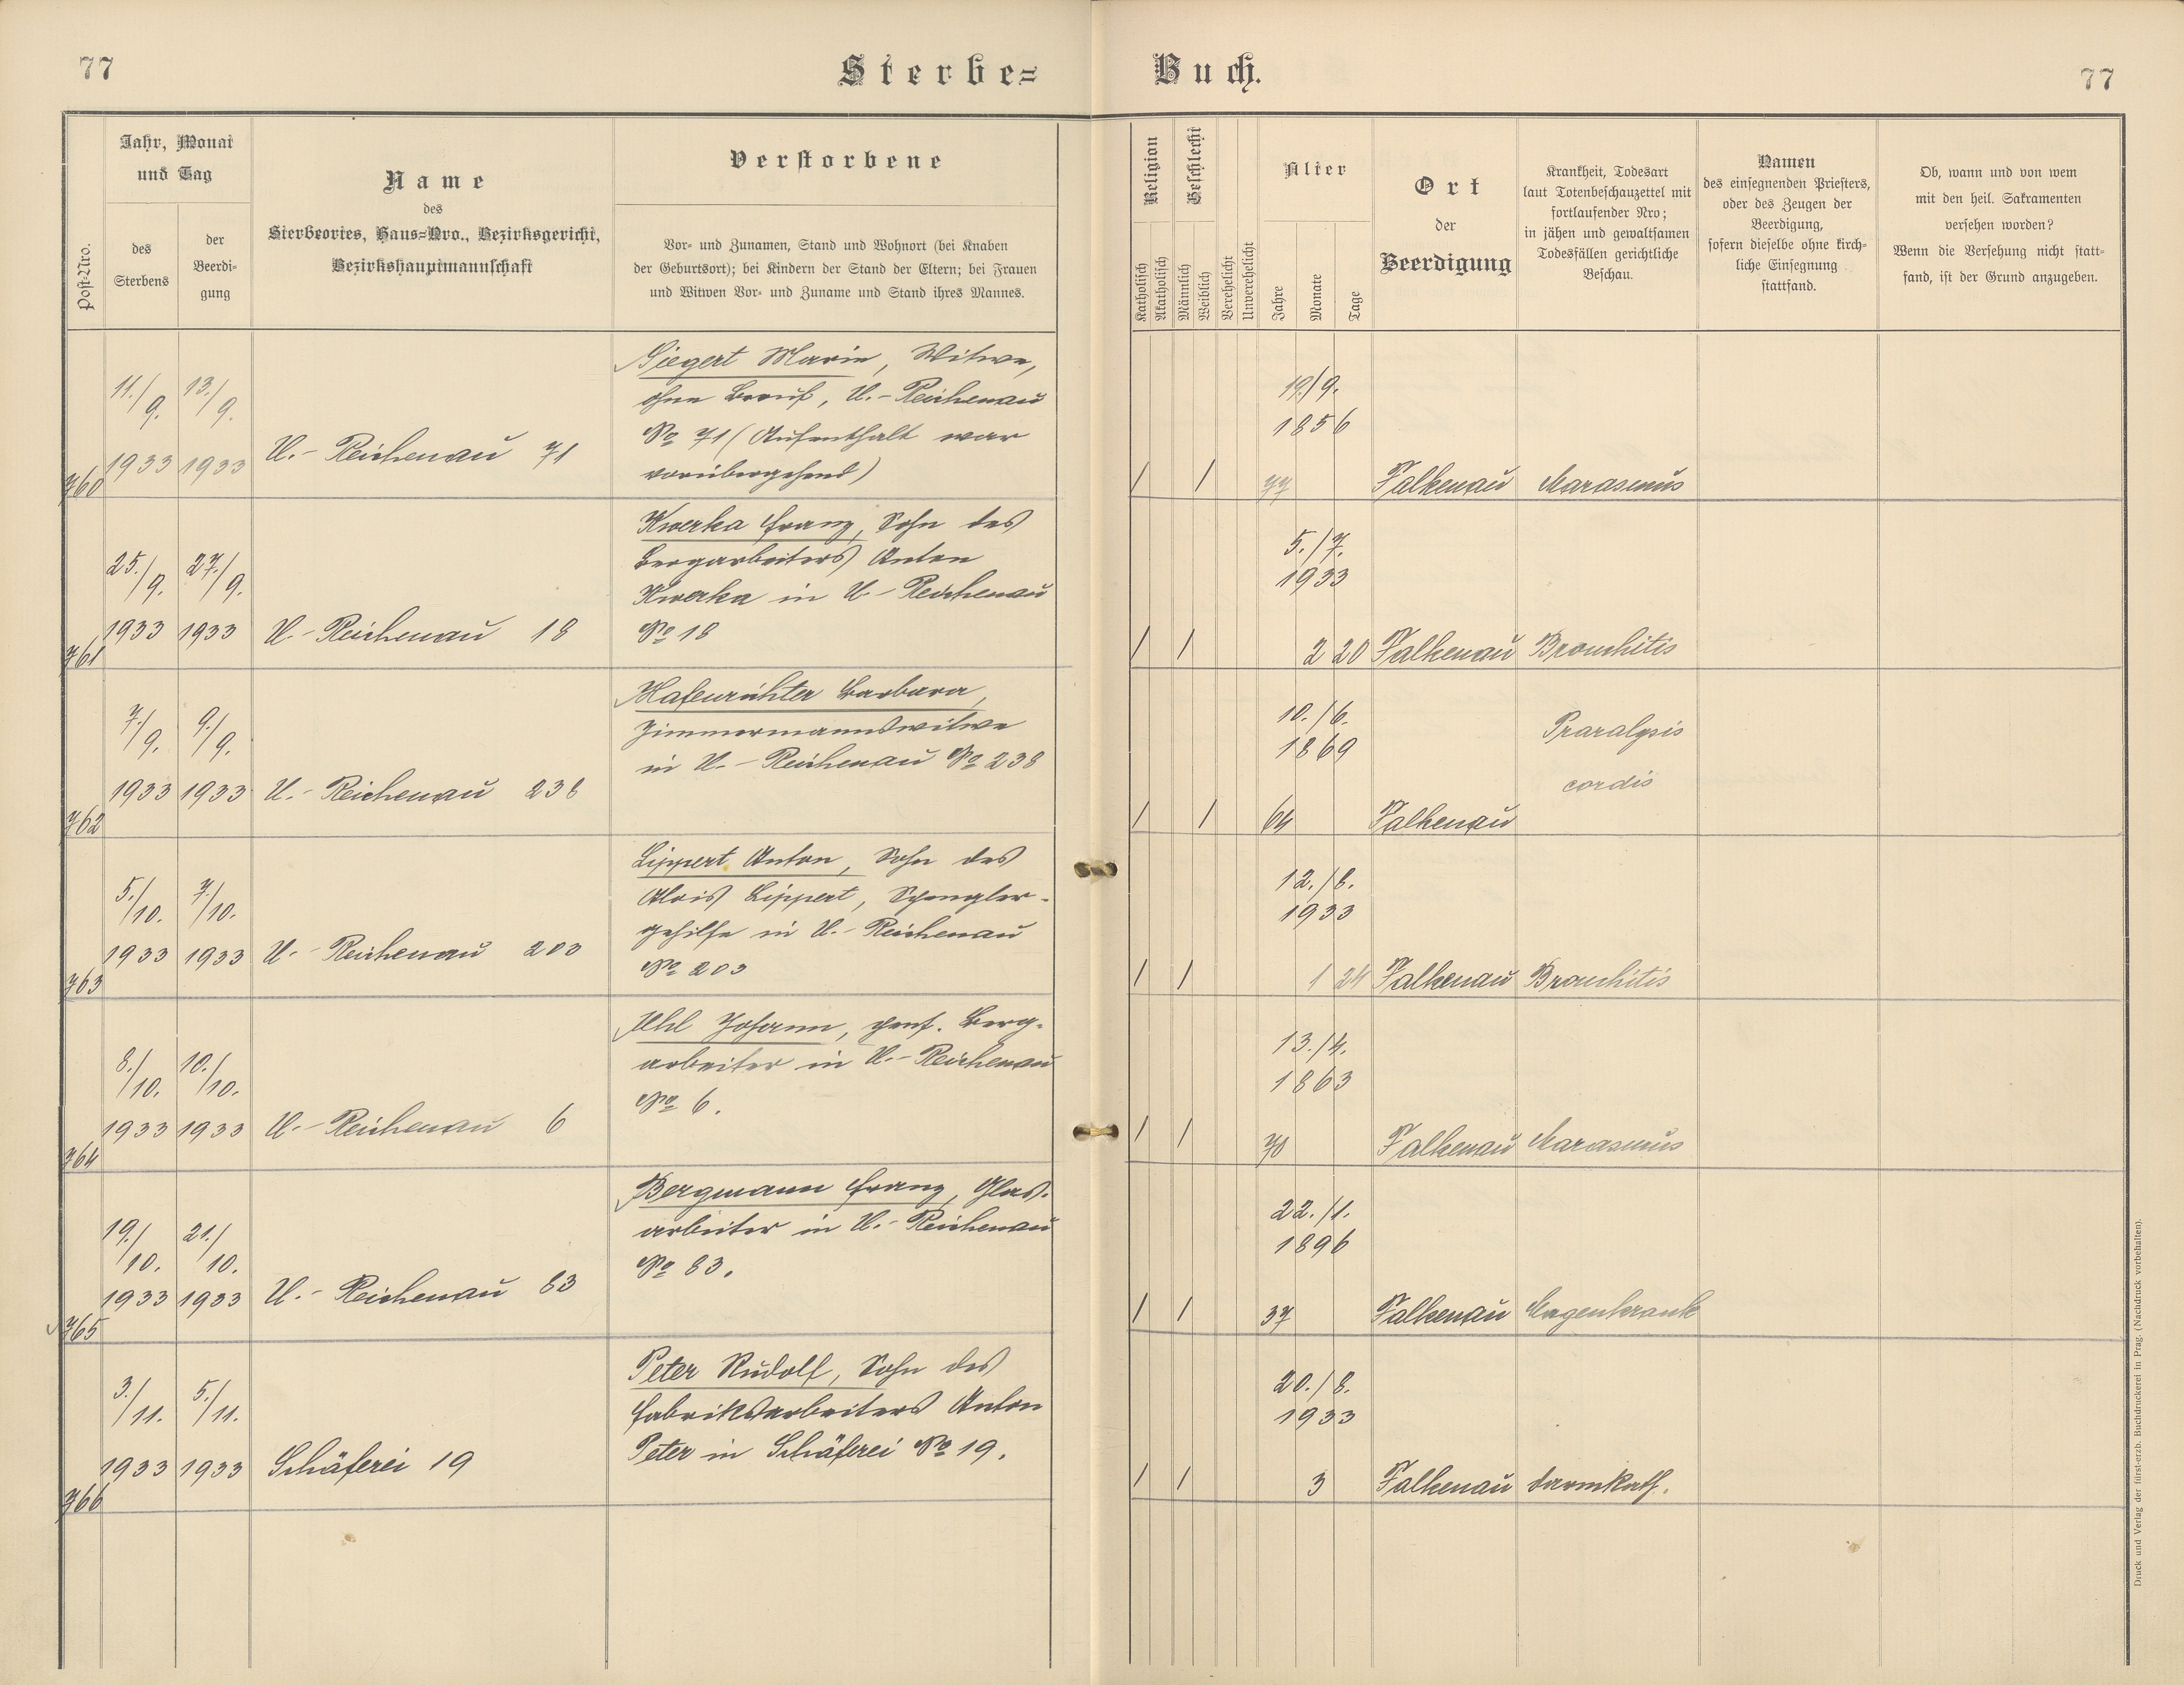 77
Sterbe=
Buch.
77
Post=Nro.
Jahr, Monat
und Tag
des
Sterbens
der
Beerdi=
gung
Name
des
Sterbeortes, Haus=Nro., Bezirksgericht,
Bezirkshauptmannschaft
Verstorbene
Vor= und Zunamen, Stand und Wohnort (bei Knaben
der Geburtsort); bei Kindern der Stand der Eltern; bei Frauen
und Witwen Vor= und Zuname und Stand ihres Mannes.
Religion
Katholisch
Akatholisch
Geschlecht
Männlich
Weiblich
Verehelicht
Unverehelicht
Alter
Jahre
Monate
Tage
Ort
der
Beerdigung
Krankheit, Todesart
laut Totenbeschauzettel mit
fortlaufender Nro;
in jähen und gewaltsamen
Todesfällen gerichtliche
Beschau.
Namen
des einsegnenden Priesters,
oder des Zeugen der
Beerdigung,
sofern dieselbe ohne kirch=
liche Einsegnung
stattfand.
Ob, wann und von wem
mit den heil. Sakramenten
versehen worden?
Wenn die Versehung nicht statt=
fand, ist der Grund anzugeben.
760
11./9. 1933
13./9. 1933
U.- Reichenau 71
Siegert Marie, Witwe,
ohne Beruf, U.- Reichenau
No 71 (Aufenthalt war
vorübergehend)
/ /
19./9.
1856
77
Falkenau
Marasmus
761
25./9. 1933
27./9. 1933
U.- Reichenau 18
Kwerka Franz, Sohn des
Bergarbeiters Anton
Kwerka in U.- Reichenau
No 18
/ /
5./7.
1933
2 20
Falkenau
Bronchitis
762
7./9. 1933
9./9. 1933
U.- Reichenau 238
Hafenrichter Barbara,
Zimmermannswitwe
in U.- Reichenau No 238
/ /
10./6.
1869
64
Falkenau
Praralysis
cordis
763
5./10. 1933
7./10. 1933
U.- Reichenau 203
Lippert Anton, Sohn des
Alois Lippert, Spengler-
gehilfe in U.- Reichenau
No 203
/ /
12./8.
1933
1 24
Falkenau
Bronchitis
764
8./10. 1933
10./10. 1933
U.- Reichenau 6
Uhl Johann, pens. Berg-
arbeiter in U.- Reichenau
No 6.
/ /
13./4.
1863
70
Falkenau
Marasmus
765
19./10. 1933
21./10. 1933
U.- Reichenau 83
Bergmann Franz, Glas-
arbeiter in U.- Reichenau
No 83.
/ /
22./1.
1896
37
Falkenau
Magenkrank
766
3./11. 1933
5./11. 1933
Schäferei 19
Peter Rudolf, Sohn des
Fabriksarbeiters Anton
Peter in Schäferei No 19.
/ /
20./8.
1933
3
Falkenau
Darmkath.
Druck und Verlag der fürst-erzb. Buchdruckerei in Prag. (Nachdruck vorbehalten).